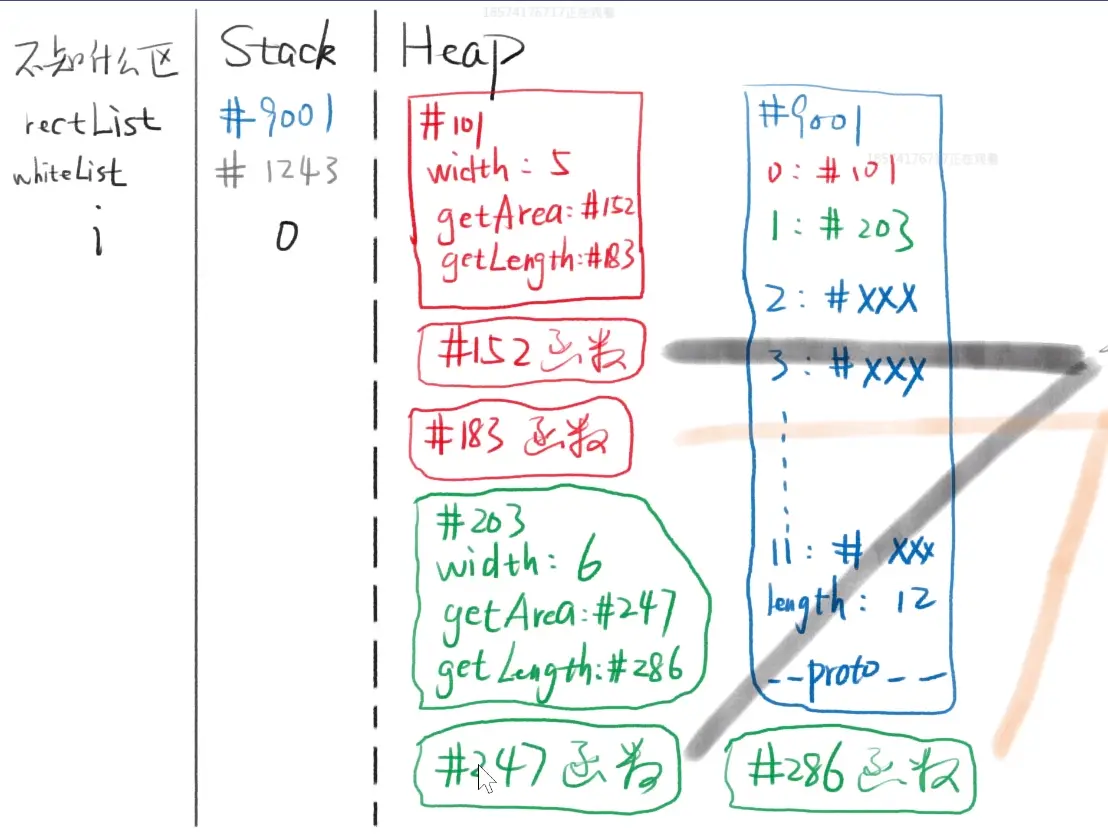 18574176717正在观看
不知什么区 Stack Heap
rectList #9001
whiteList #1243
i 0
#101
width: 5
getArea:#152
getLength:#183
#152 函数
#183 函数
#203
width: 6
getArea:#247
getLength:#286
#247 函数
#9001
18574176717正在观看
0: #101
1: #203
2: #XXX
3: #XXX
11: # XXX
length: 12
--proto--
#286 函数